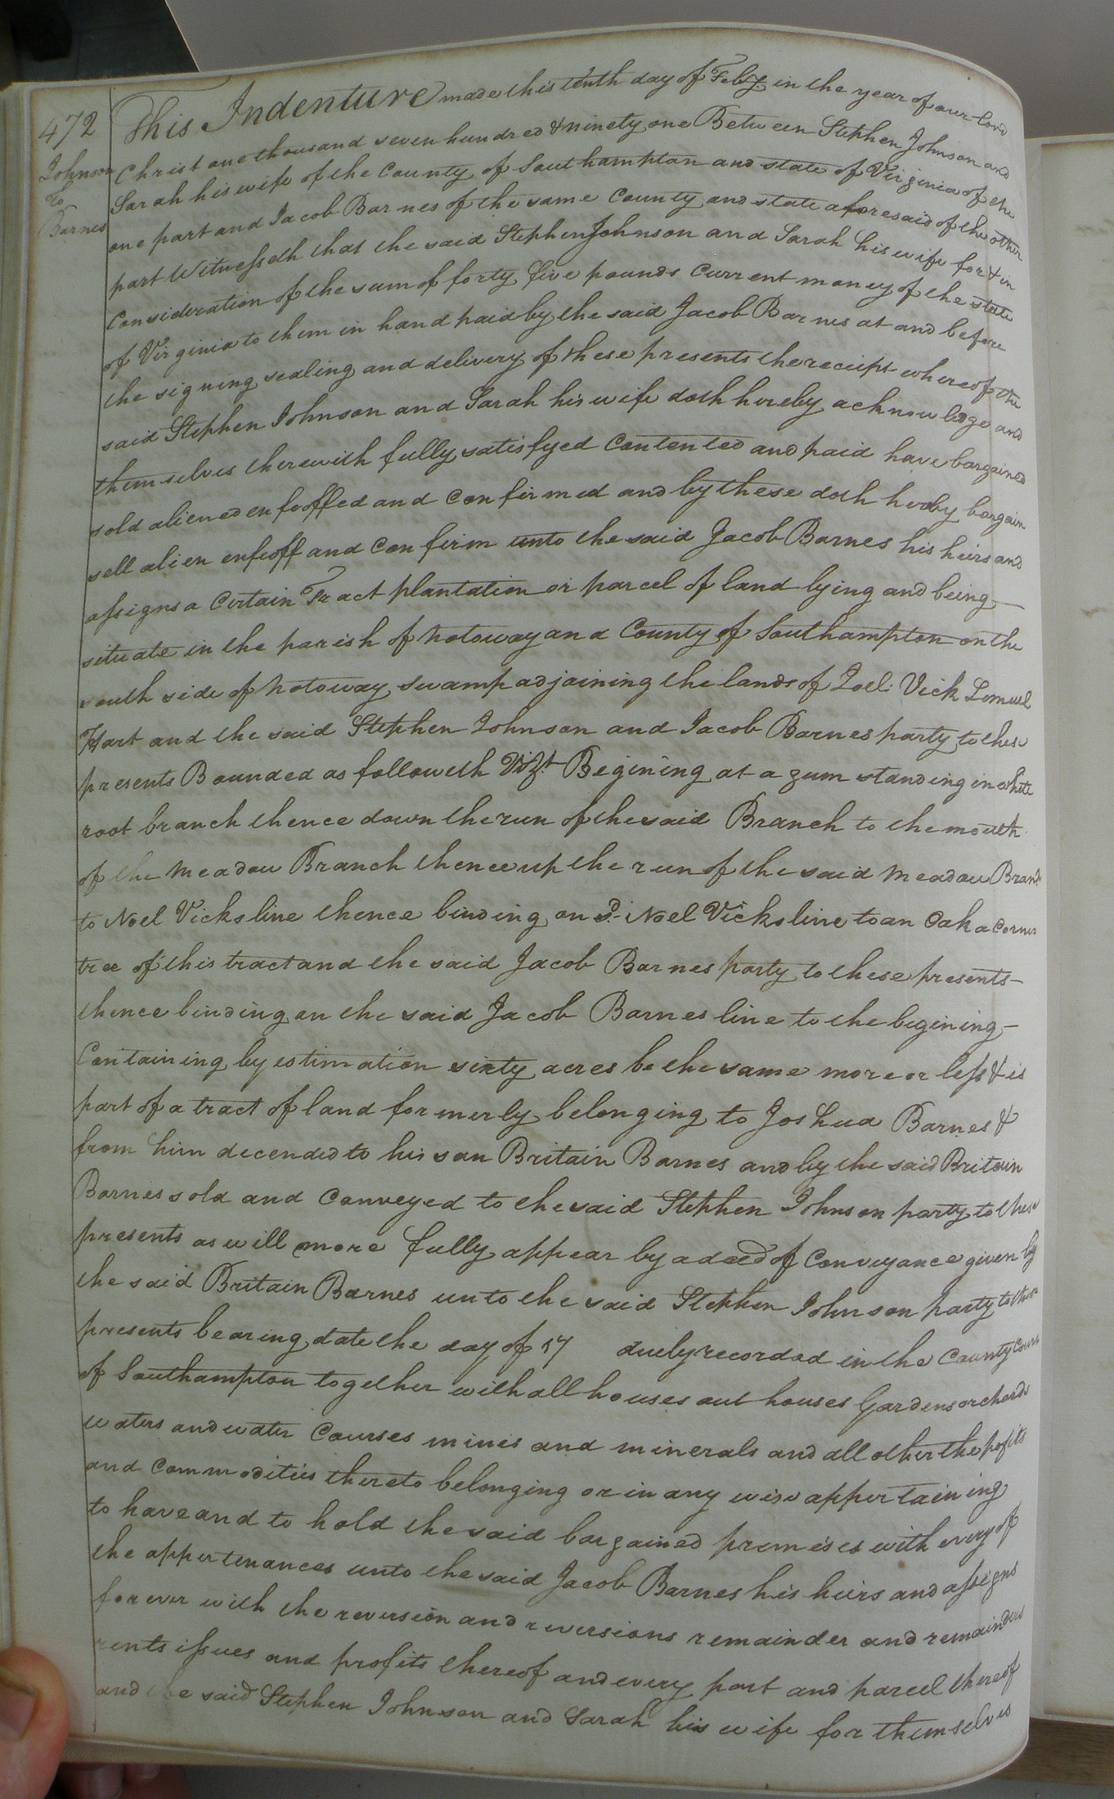 472
Johnson
To
Barnes
This Indenture made this tenth day of Feby in the year of our Lord
Christ one thousand seven hundred & ninety one Between Stephen Johnson and
Sarah his wife of the County of Southampton and state of Virginia of the
one part and Jacob Barnes of the same County and state aforesaid of the other
part Witnesseth that the said Stephen Johnson and Sarah his wife for & in
Consideration of the sum of forty five pounds Current money of the state
of Virginia to them in hand paid by the said Jacob Barnes at and before
the signing sealing and delivery of these presents the receipt whereof the
said Stephen Johnson and Sarah his wife doth hereby acknowledge and
themselves therewith fully satisfyed Contented and paid have bargained
sold aliened enfeoffed and Confirmed and by these doth hereby bargain
sell alien enfeoff and Confirm unto the said Jacob Barnes his heirs and
assigns a Certain Tract plantation or parcel of land lying and being
situate in the parish of Notoway and County of Southampton on the
south side of Notoway swamp adjoining the lands of Noel Vick Lemuel
Hart and the said Stephen Johnson and Jacob Barnes party to these
presents Bounded as followeth Vizt Begining at a gum standing in white
root branch thence down the run of the said Branch to the mouth
of the Meadow Branch thence up the run of the said Meadow Branch
to Noel Vicks line thence binding on sd Noel Vicks line to an Oak a Corner
tree of this tract and the said Jacob Barnes party to these presents
thence binding on the said Jacob Barnes line to the begining
Containing by estimation sixty acres be the same more or less & is
part of a tract of land formerly belonging to Joshua Barnes &
from him decended to his son Britain Barnes and by the said Britain
Barnes sold and Conveyed to the said Stephen Johnson party to these
presents as will more fully appear by a deed of Conveyance given by
the said Britain Barnes unto the said Stephen Johnson party to these
presents bearing date the day of 17 duely recorded in the County Court
of Southampton together with all houses out houses Gardens orchards
waters and water Courses mines and minerals and all other the profits
and Commodities thereto belonging or in any wise appertaining
to have and to hold the said bargained premises with every of
the appertenances unto the said Jacob Barnes his heirs and assigns
forever with the reversion and reversions remainder and remainders
rents issues and profits thereof and every part and parcel thereof
and the said Stephen Johnson and Sarah his wife for themselves